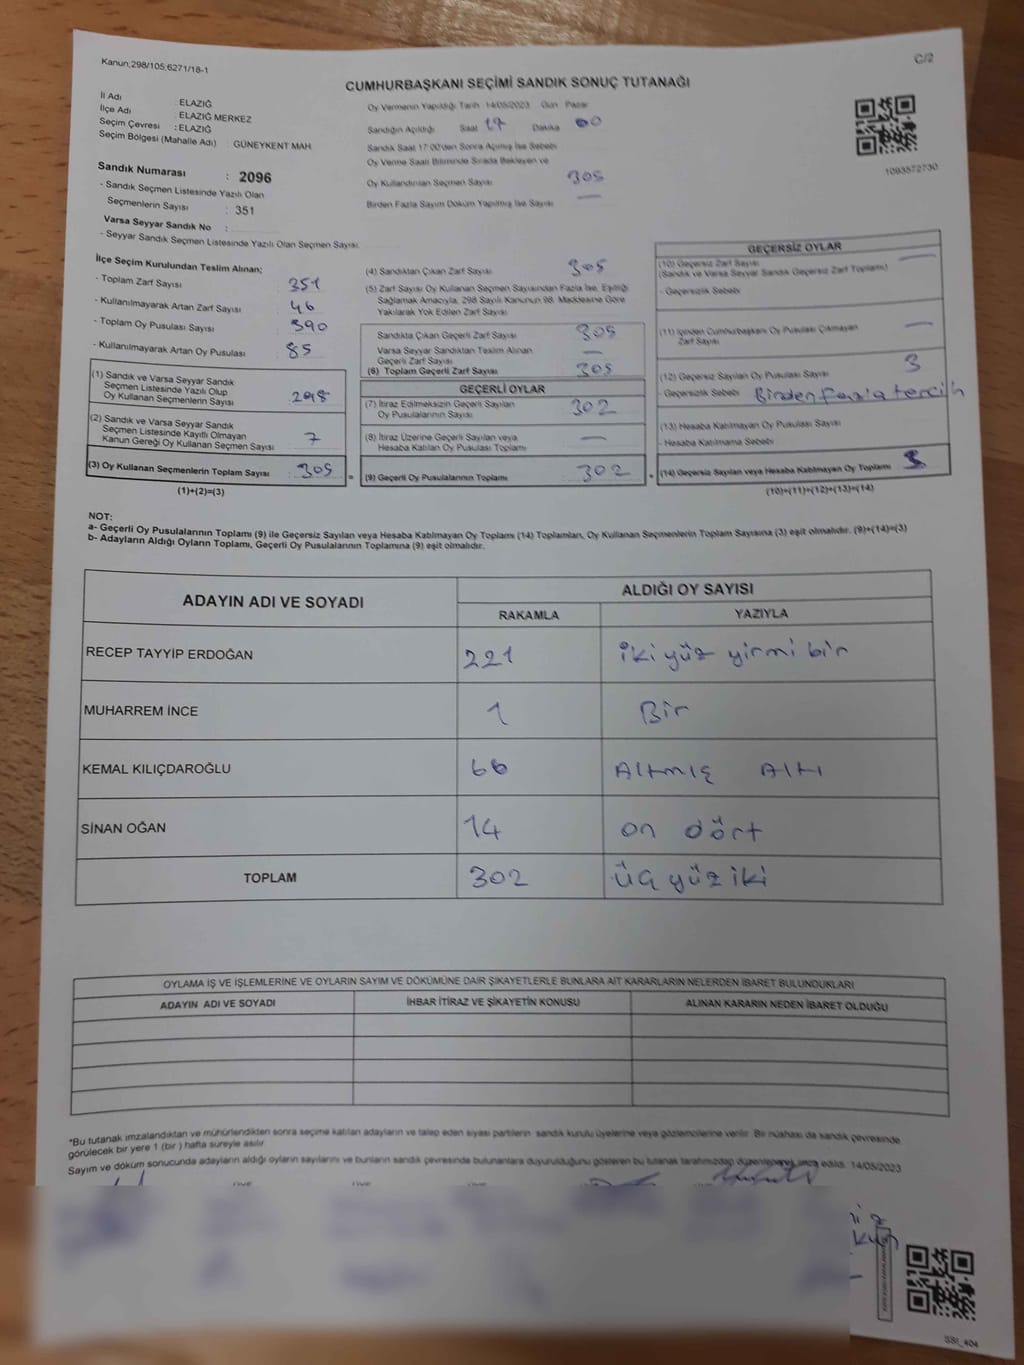 Kanun:298/105;6271/18-1
C/2
CUMHURBAŞKANI SEÇİMİ SANDIK SONUÇ TUTANAĞI
İl Adı : ELAZIĞ
İlçe Adı : ELAZIĞ MERKEZ
Seçim Çevresi : ELAZIĞ
Seçim Bölgesi (Mahalle Adı) : GÜNEYKENT MAH.
Oy Vermenin Yapıldığı Tarih :14/05/2023 Gün Pazar
Sandığın Açıldığı Saat 17 Dakika 00
Sandık Saat 17:00'den Sonra Açılmış İse Sebebi
Oy Verme Saati Bitiminde Sırada Bekleyen ve
Oy Kullandırılan Seçmen Sayısı 305
Birden Fazla Sayım Döküm Yapılmış İse Sayısı —
1093572730
Sandık Numarası : 2096
- Sandık Seçmen Listesinde Yazılı Olan
Seçmenlerin Sayısı : 351
Varsa Seyyar Sandık No :
- Seyyar Sandık Seçmen Listesinde Yazılı Olan Seçmen Sayısı:
İlçe Seçim Kurulundan Teslim Alınan;
- Toplam Zarf Sayısı 351
- Kullanılmayarak Artan Zarf Sayısı 46
- Toplam Oy Pusulası Sayısı 390
- Kullanılmayarak Artan Oy Pusulası 85
(1) Sandık ve Varsa Seyyar Sandık
Seçmen Listesinde Yazılı Olup
Oy Kullanan Seçmenlerin Sayısı : 298
(2) Sandık ve Varsa Seyyar Sandık
Seçmen Listesinde Kayıtlı Olmayan
Kanun Gereği Oy Kullanan Seçmen Sayısı : 7
(3) Oy Kullanan Seçmenlerin Toplam Sayısı : 305 =
(1)+(2)=(3)
(4) Sandıktan Çıkan Zarf Sayısı 305
(5) Zarf Sayısı Oy Kullanan Seçmen Sayısından Fazla İse, Eşitliği
Sağlamak Amacıyla, 298 Sayılı Kanunun 98. Maddesine Göre
Yakılarak Yok Edilen Zarf Sayısı
Sandıkta Çıkan Geçerli Zarf Sayısı 305
Varsa Seyyar Sandıktan Teslim Alınan
Geçerli Zarf Sayısı —
(6) Toplam Geçerli Zarf Sayısı 305
GEÇERLİ OYLAR
(7) İtiraz Edilmeksizin Geçerli Sayılan
Oy Pusulalarının Sayısı 302
(8) İtiraz Üzerine Geçerli Sayılan veya
Hesaba Katılan Oy Pusulası Toplamı —
(9) Geçerli Oy Pusulalarının Toplamı 302 +
GEÇERSİZ OYLAR
(10) Geçersiz Zarf Sayısı —
(Sandık ve Varsa Seyyar Sandık Geçersiz Zarf Toplamı)
- Geçersizlik Sebebi
(11) İçinden Cumhurbaşkanı Oy Pusulası Çıkmayan
Zarf Sayısı —
(12) Geçersiz Sayılan Oy Pusulası Sayısı 3
- Geçersizlik Sebebi Birden fazla tercih
(13) Hesaba Katılmayan Oy Pusulası Sayısı
- Hesaba Katılmama Sebebi
(14) Geçersiz Sayılan veya Hesaba Katılmayan Oy Toplamı 3
(10)+(11)+(12)+(13)=(14)
NOT:
a- Geçerli Oy Pusulalarının Toplamı (9) ile Geçersiz Sayılan veya Hesaba Katılmayan Oy Toplamı (14) Toplamları, Oy Kullanan Seçmenlerin Toplam Sayısına (3) eşit olmalıdır. (9)+(14)=(3)
b- Adayların Aldığı Oyların Toplamı, Geçerli Oy Pusulalarının Toplamına (9) eşit olmalıdır.
ADAYIN ADI VE SOYADI
ALDIĞI OY SAYISI
RAKAMLA YAZIYLA
RECEP TAYYİP ERDOĞAN 221 iki yüz yirmi bir
MUHARREM İNCE 1 Bir
KEMAL KILIÇDAROĞLU 66 Altmış Altı
SİNAN OĞAN 14 on dört
TOPLAM 302 üç yüz iki
OYLAMA İŞ VE İŞLEMLERİNE VE OYLARIN SAYIM VE DÖKÜMÜNE DAİR ŞİKAYETLERLE BUNLARA AİT KARARLARIN NELERDEN İBARET BULUNDUKLARI
ADAYIN ADI VE SOYADI İHBAR İTİRAZ VE ŞİKAYETİN KONUSU ALINAN KARARIN NEDEN İBARET OLDUĞU
*Bu tutanak imzalandıktan ve mühürlendikten sonra seçime katılan adayların ve talep eden siyasi partilerin sandık kurulu üyelerine veya gözlemcilerine verilir. Bir nüshası da sandık çevresinde
görülecek bir yere 1 (bir ) hafta süreyle asılır.
Sayım ve döküm sonucunda adayların aldığı oyların sayılarını ve bunların sandık çevresinde bulunanlara duyurulduğunu gösteren bu tutanak tarafımızdan düzenlenerek imza edildi. 14/05/2023
SSI_404